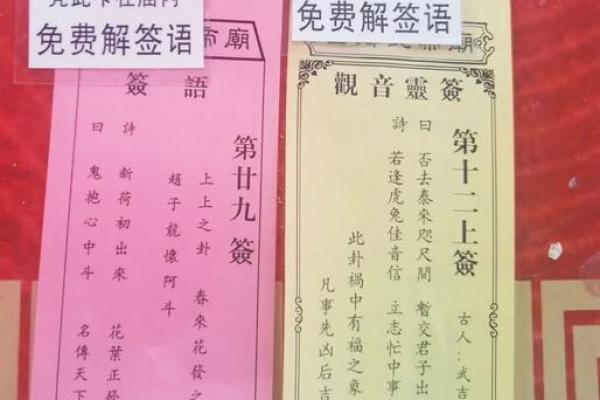 凭此卡在庙内
免费解签语
帝廟
簽語
第廿九簽
上上之卦 春來花發之
趙子龍懷阿斗
詩 新荷初出來 花葉正發
曰 鬼抱心中斗 名傳天下
免费解签语
帝廟
觀音靈簽
第十二上簽
古人:武吉
曰 否去泰來咫尺間 暫交君子出
詩 若逢虎兔佳音信 立志忙中事
此卦禍中有福之象
凡事先凶后吉